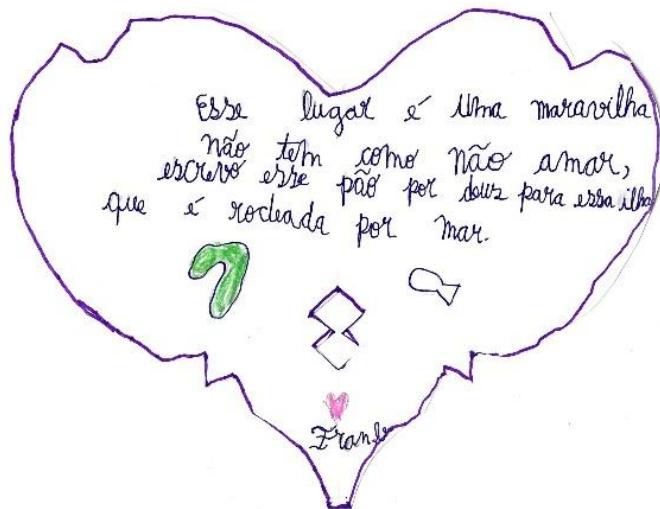 Esse lugar é uma maravilha
não tem como não amar,
escrevo esse pão por deus para essa ilha
que é rodeada por mar.